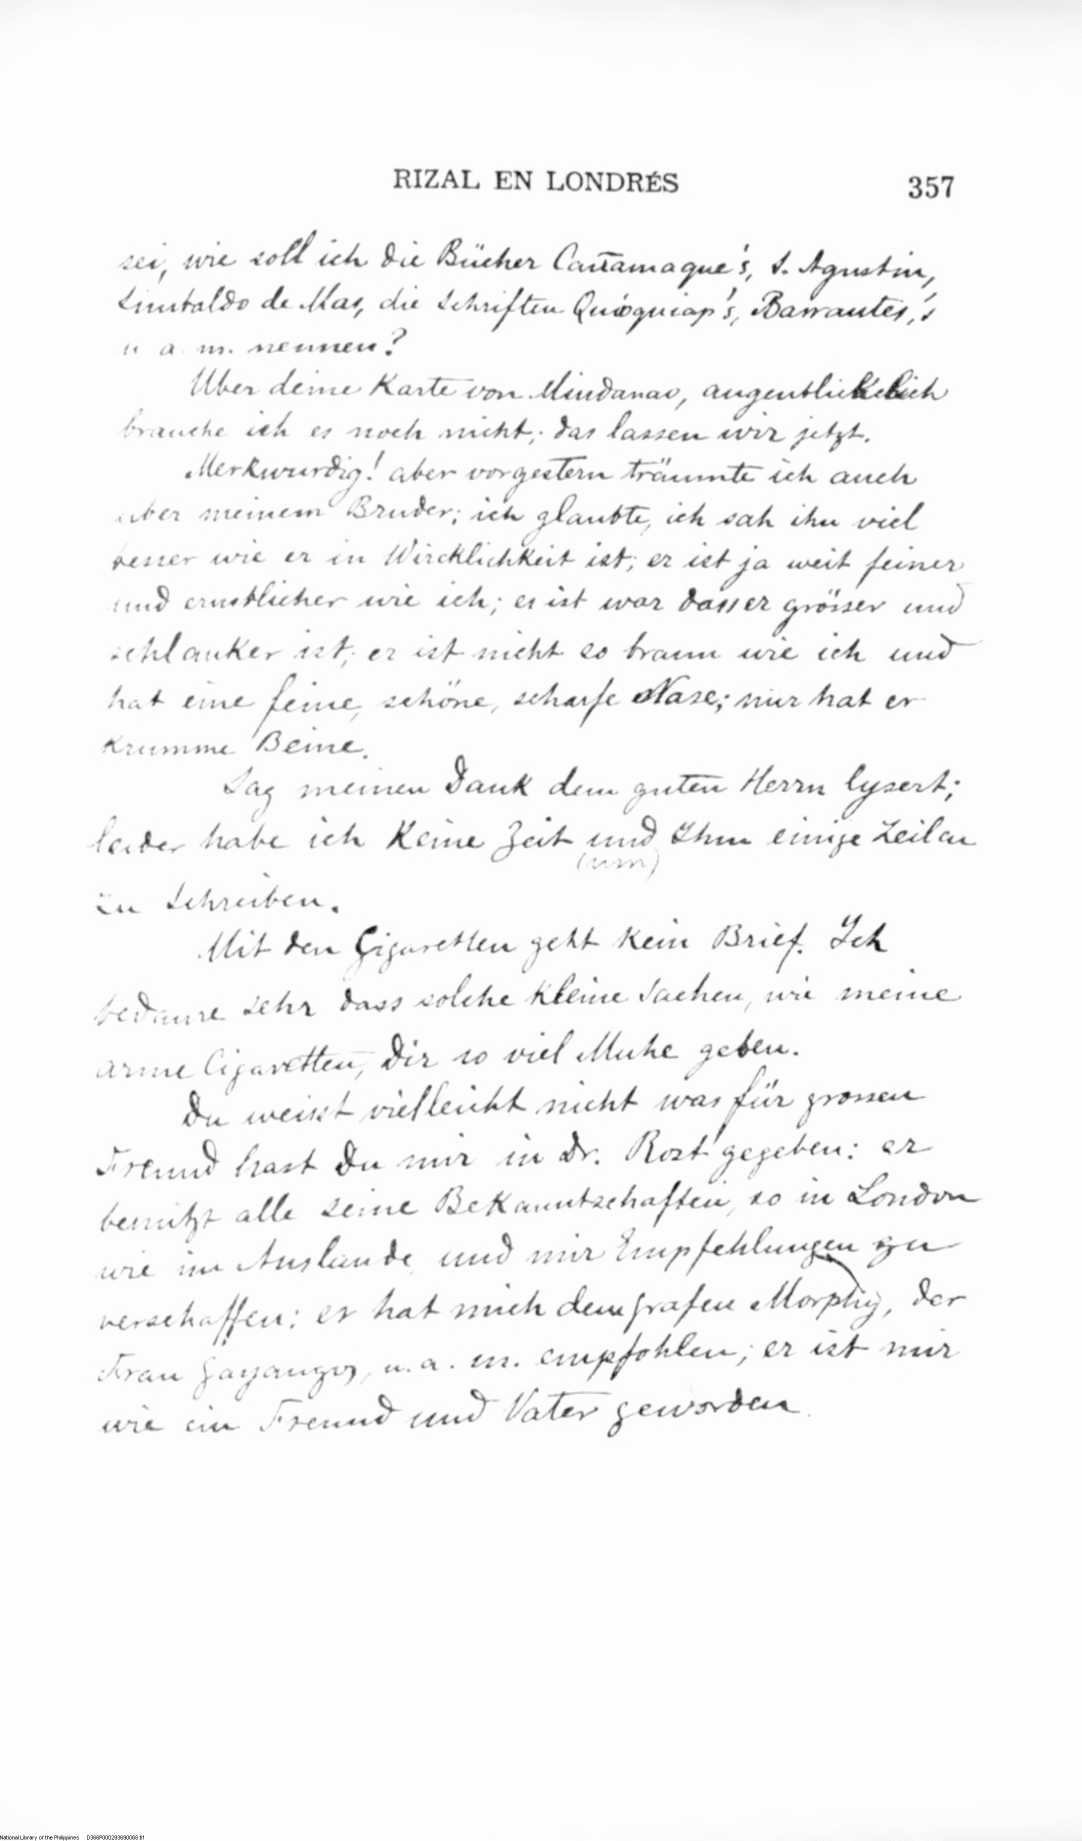 RIZAL EN LONDRÉS
357
sei, wie soll ich die Bücher Cañamaque's, S. Agustin,
Sinibaldo de Mas, die Schriften Quioquiap's, Barrantes,'s
u a. m. nennen?
Uber deine Karte von Mindanao, augenblickelich
brauche ich es noch nicht; das lassen wir jetzt.
Merkwurdig! aber vorgestern träumte ich auch
uber meinem Bruder; ich glaubte, ich sah ihn viel
besser wie er in Wircklichkeit ist; er ist ja weit feiner
und ernstlicher wie ich; es ist war dass er grösser und
schlanker ist; er ist nicht so braun wie ich und
hat eine feine, schöne, scharfe Nase; nur hat er
krumme Beine.
Sag meinen Dank dem guten Herrn
leider habe ich Keine Zeit und Ihm einige Zeilen
(um)
zu schreiben.
Mit den Cigaretten geht kein Brief. Ich
bedaure sehr dass solche kleine Sachen, wie meine
arme Cigaretten, Dir so viel Muhe geben.
Du weisst vielleicht nicht was für grossen
Freund hast Du mir in Dr. Rost gegeben: er
benützt alle seine Bekanntschaften, so in London
wie im Auslande, und mir Empfehlungen zu
verschaffen: er hat mich dem grafen Morphy, der
Frau Gayangos, u. a. m. empfohlen; er ist mir
wie ein Freund und Vater geworden.
National Library of the Philippines